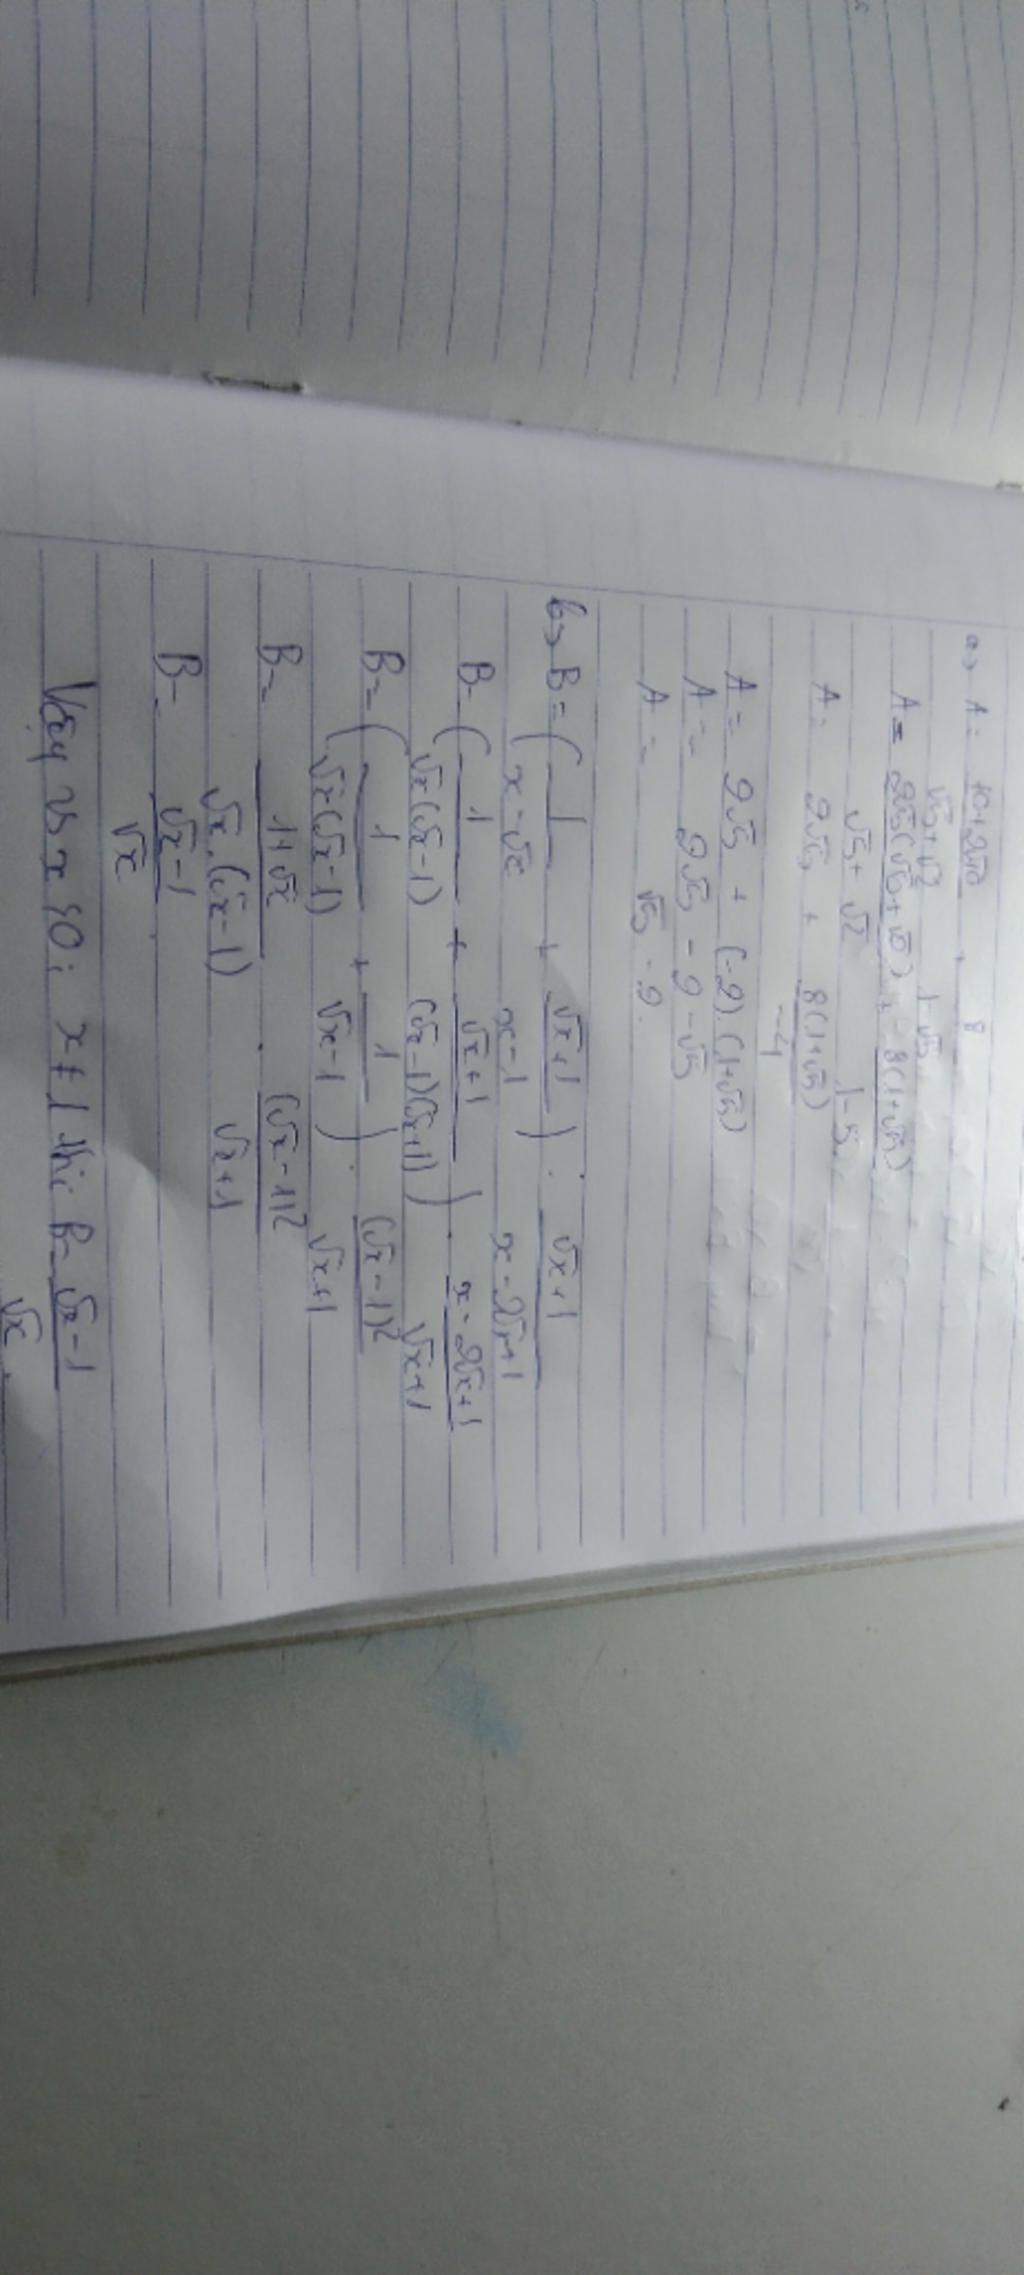 a> A = (10+2√10)/(√5+√2) + 8/(1-√5)
A = 2√5(√5+√2)/(√5+√2) + 8(1+√5)/(1-5)
A = 2√5 + 8(1+√5)/-4
A = 2√5 + (-2).(1+√5)
A = 2√5 - 2 - √5
A = √5 - 2.
b> B = (1/(x-√x) + (√x+1)/(x-1)) : (√x+1)/(x-2√x+1)
B = (1/(√x(√x-1)) + (√x+1)/((√x-1)(√x+1))) . (x-2√x+1)/(√x+1)
B = (1/(√x(√x-1)) + 1/(√x-1)) . (√x-1)²/(√x+1)
B = (1+√x)/(√x.(√x-1)) . (√x-1)²/(√x+1)
B = (√x-1)/√x
Vậy với x>0; x≠1 thì B = (√x-1)/√x.